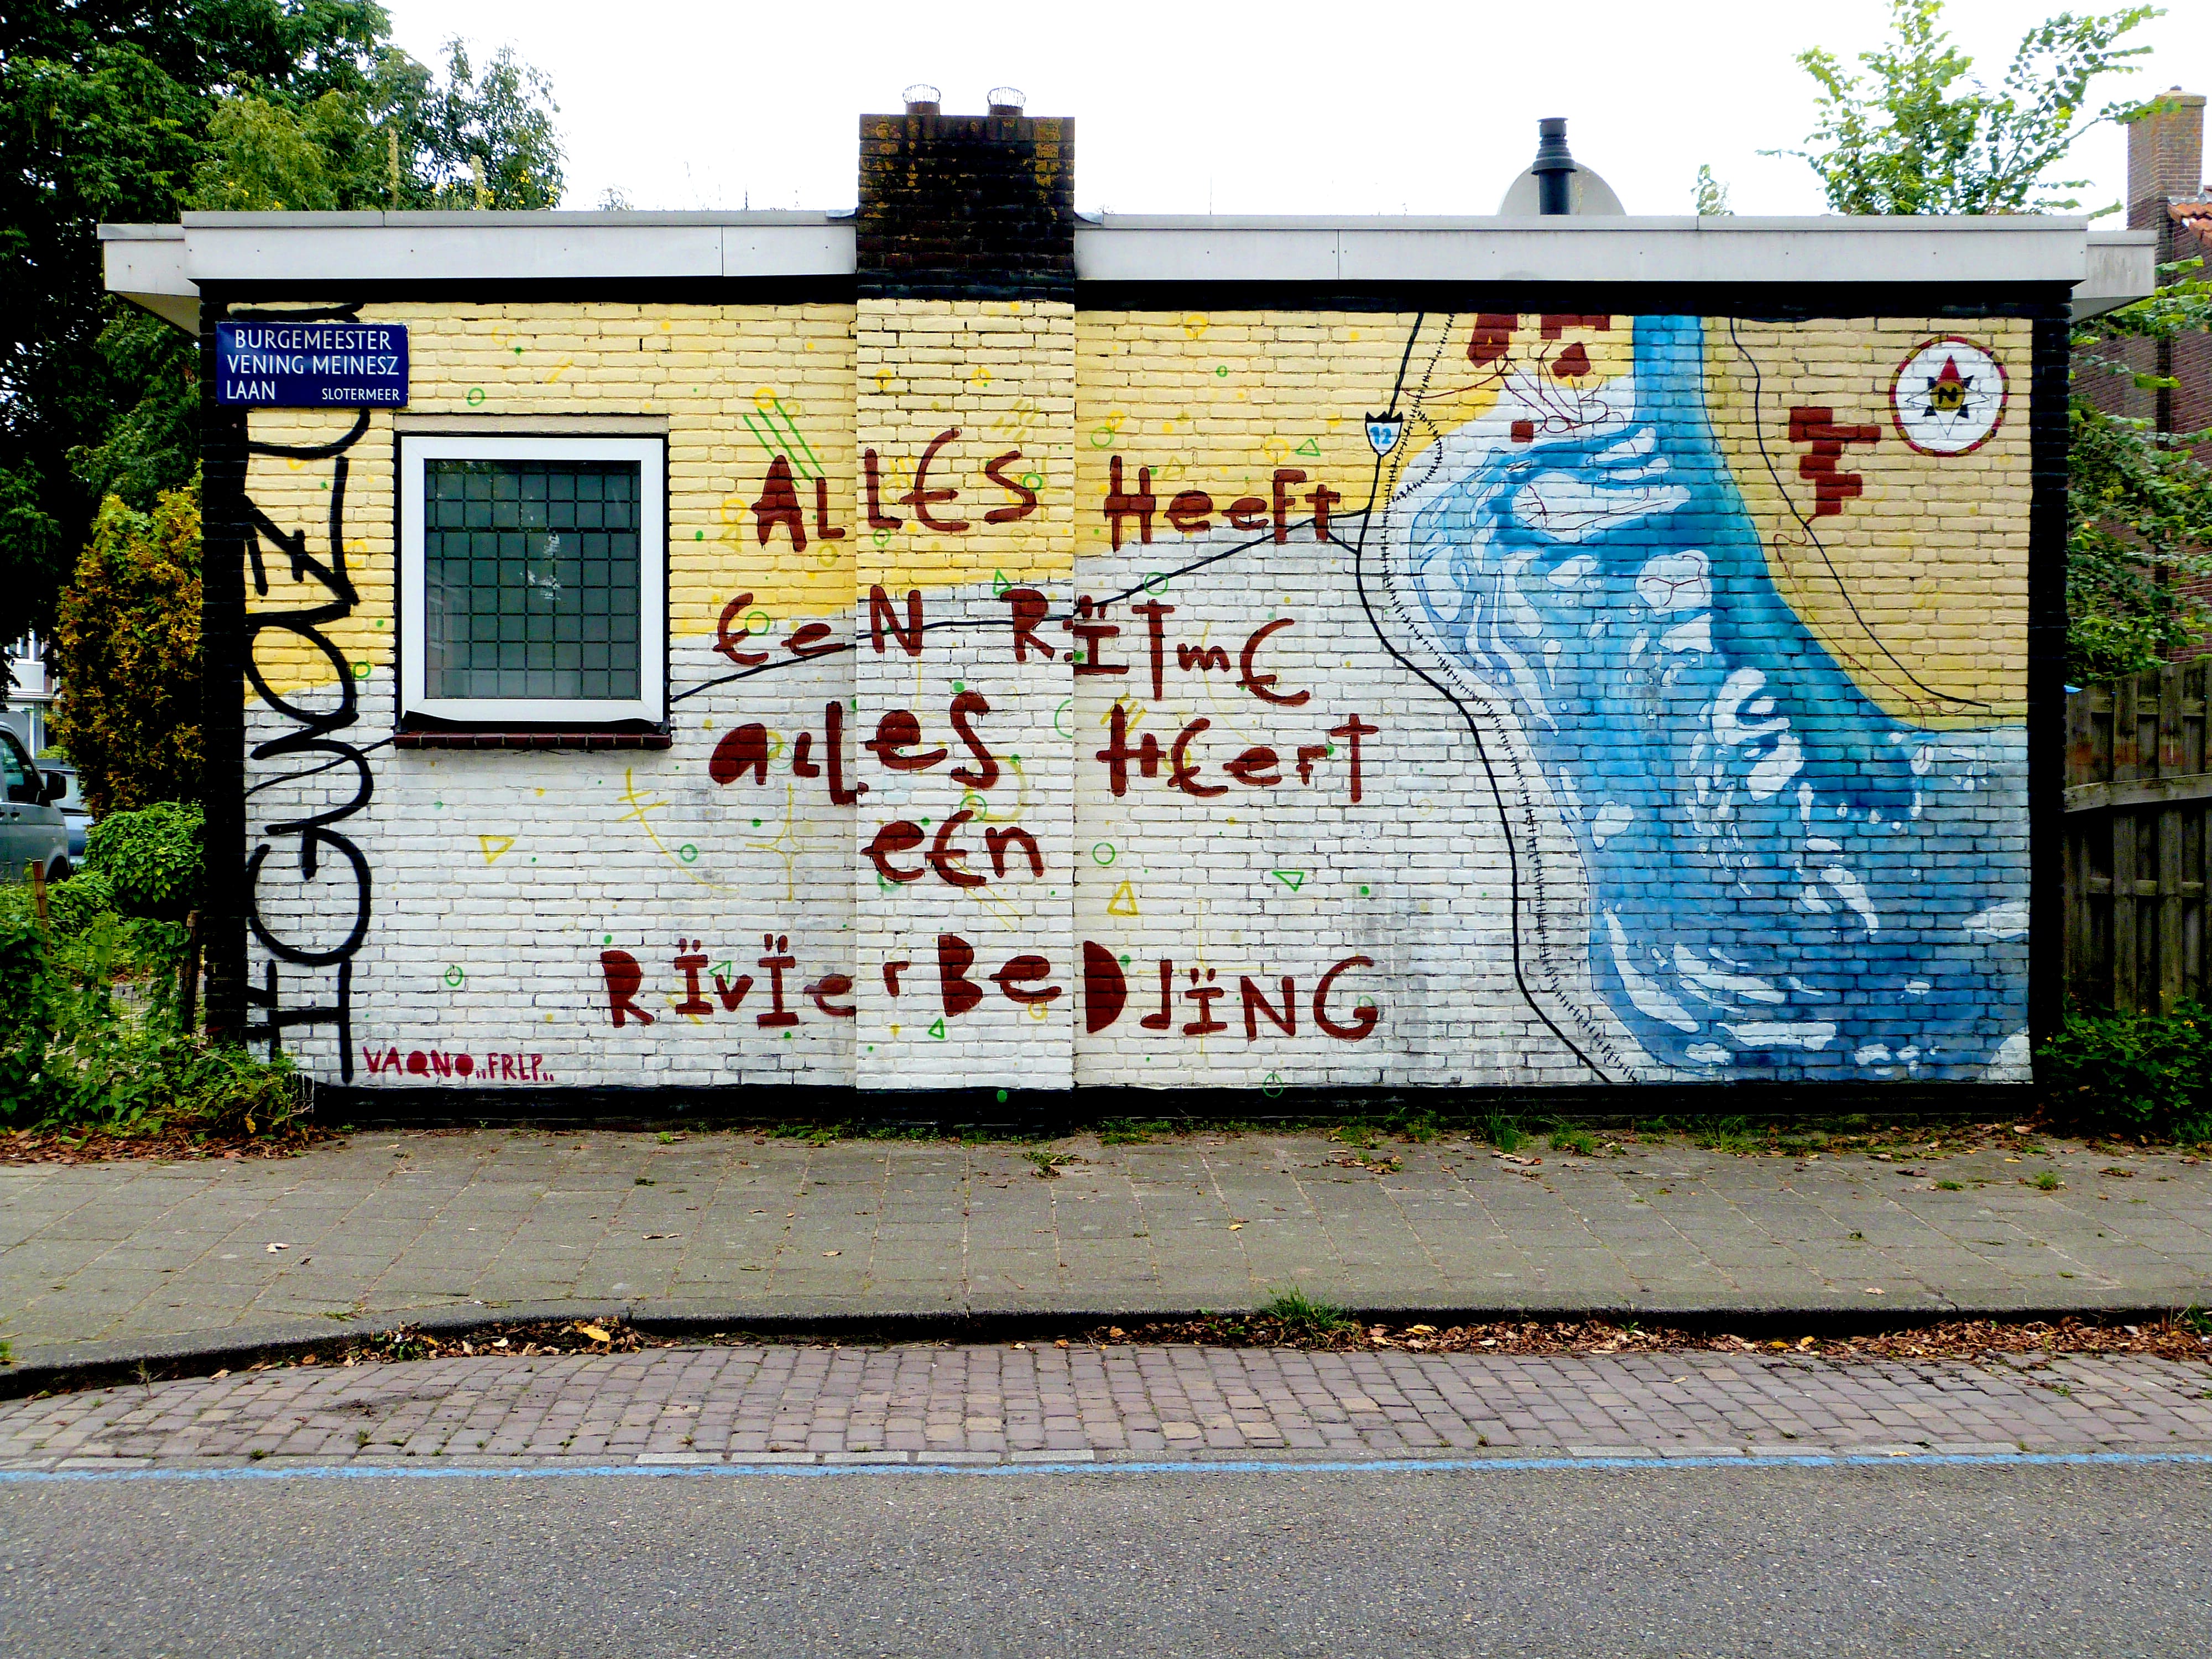 BURGEMEESTER
VENING MEINESZ
LAAN SLOTERMEER
ALLES HeeFt
EeN RÏTmE
aLLes HEerT
eEn
RÏVÏerBeDJÏNG
VAQNO,,FRLP..
12
N